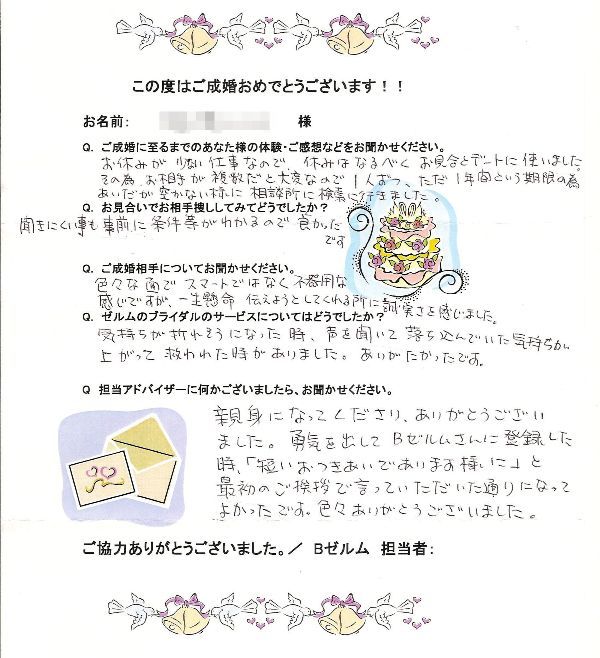 この度はご成婚おめでとうございます！！
お名前: 様
Q. ご成婚に至るまでのあなた様の体験・ご感想などをお聞かせください。
お休みが少ない仕事なので、休みはなるべくお見合とデートに使いました
その為、お相手が複数だと大変なので1人ずつ、ただ1年間という期限の為
あいだが空かない様に相談所に検索に行きました。
Q. お見合いでお相手捜ししてみてどうでしたか？
聞きにくい事も事前に条件等がわかるので良かった
です
Q. ご成婚相手についてお聞かせください。
色々な面でスマートではなく不器用な
感じですが、一生懸命 伝えようとしてくれる所に誠実さを感じました。
Q. ゼルムのブライダルのサービスについてはどうでしたか？
気持ちが折れそうになった時、声を聞いて落ち込んでいた気持ちが
上がって救われた時がありました。ありがたかったです。
Q 担当アドバイザーに何かございましたら、お聞かせください。
親身になってくださり、ありがとうござい
ました。勇気を出してBゼルムさんに登録した
時、「短いおつきあいであります様に」と
最初のご挨拶で言っていただいた通りになって
よかったです。色々ありがとうございました。
ご協力ありがとうございました。／ Bゼルム 担当者: